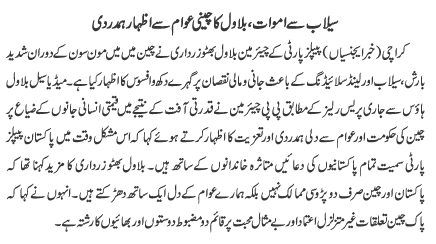 سیلاب سے اموات، بلاول کا چینی عوام سے اظہار ہمدردی
کراچی (خبر ایجنسیاں) پیپلز پارٹی کے چیئرمین بلاول بھٹو زرداری نے چین میں میں مون سون کے دوران شدید
بارش، سیلاب اور لینڈ سلائیڈنگ کے باعث جانی و مالی نقصان پر گہرے دکھ و افسوس کا اظہار کیا ہے۔ میڈیا سیل بلاول
ہاؤس سے جاری پریس ریلیز کے مطابق پی پی چیئرمین نے قدرتی آفت کے نتیجے میں قیمتی انسانی جانوں کے ضیاع پر
چین کی حکومت اور عوام سے دلی ہمدردی اور تعزیت کا اظہار کرتے ہوئے کہا کہ اس مشکل وقت میں پاکستان پیپلز
پارٹی سمیت تمام پاکستانیوں کی دعائیں متاثرہ خاندانوں کے ساتھ ہیں۔ بلاول بھٹو زرداری کا مزید کہنا تھا کہ
پاکستان اور چین صرف دو پڑوسی ممالک نہیں بلکہ ہمارے عوام کے دل ایک ساتھ دھڑکتے ہیں۔ انہوں نے کہا کہ
پاک چین تعلقات غیر متزلزل اعتماد اور بے مثال محبت پر قائم دو مضبوط دوستوں اور بھائیوں کا رشتہ ہے۔